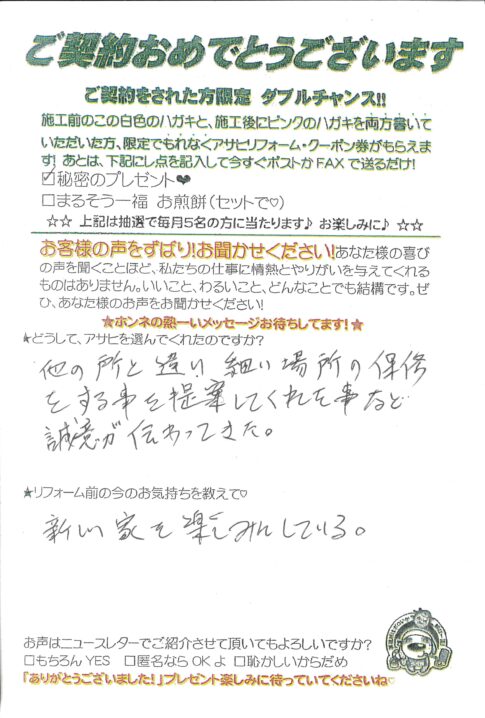 ご契約おめでとうございます
ご契約をされた方限定 ダブルチャンス!!
施工前のこの白色のハガキと、施工後にピンクのハガキを両方書いて
いただいた方、限定でもれなくアサヒリフォーム・クーポン券がもらえま
す! あとは、下記にレ点を記入して今すぐポストかFAXで送るだけ!
☑秘密のプレゼント❤
□まるそう一福 お煎餅(セットで♡)
☆☆ 上記は抽選で毎月5名の方に当たります♪ お楽しみに♪ ☆☆
お客様の声をずばり!お聞かせください!あなた様の喜び
の声を聞くことほど、私たちの仕事に情熱とやりがいを与えてくれる
ものはありません。いいこと、わるいこと、どんなことでも結構です。ぜ
ひ、あなた様のお声をお聞かせください!
★ホンネの熱ーいメッセージお待ちしてます!★
★どうして、アサヒを選んでくれたのですか?
他の所と違い 細い場所の保修
をする事を提案してくれた事など
誠意が伝わってきた。
★リフォーム前の今のお気持ちを教えて♡
新しい家を楽しみにしている。
お声はニュースレターでご紹介させて頂いてもよろしいですか?
□もちろん YES □匿名なら OK よ □恥かしいからだめ
「ありがとうございました!」プレゼント楽しみに待っていてくださいね♡